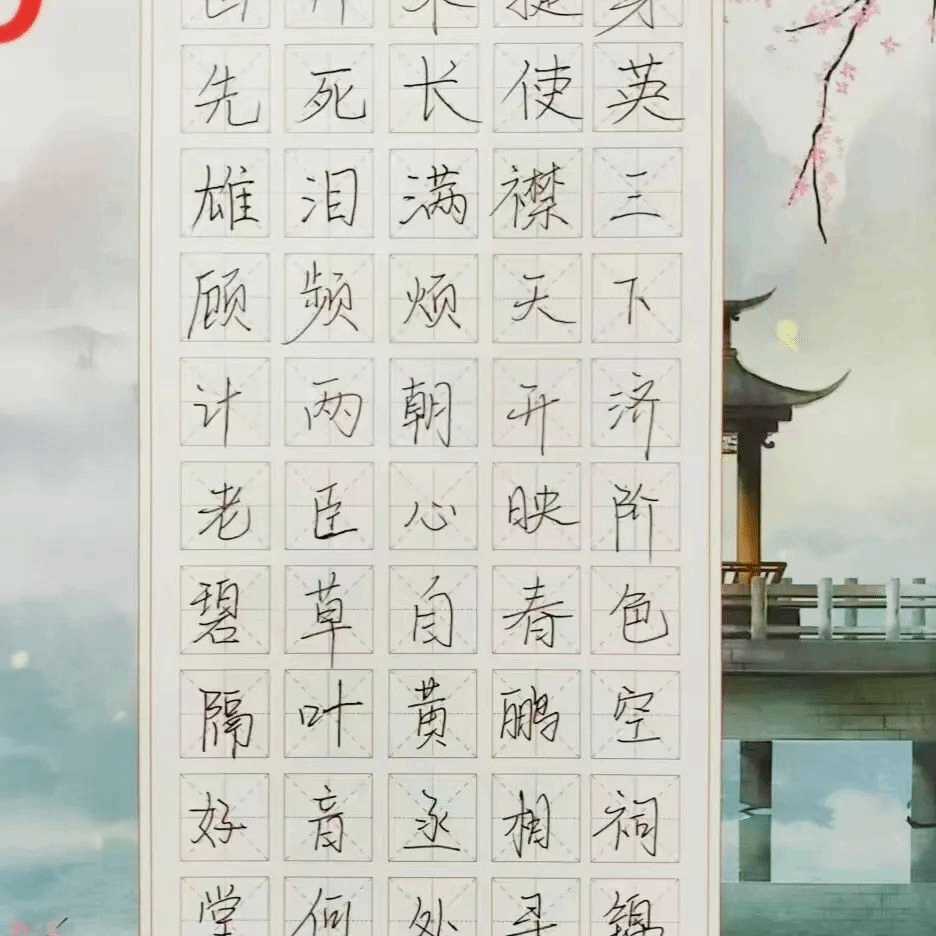 出师未捷身
先死长使英
雄泪满襟三
顾频烦天下
计两朝开济
老臣心映阶
碧草自春色
隔叶黄鹂空
好音丞相祠
堂何处寻锦